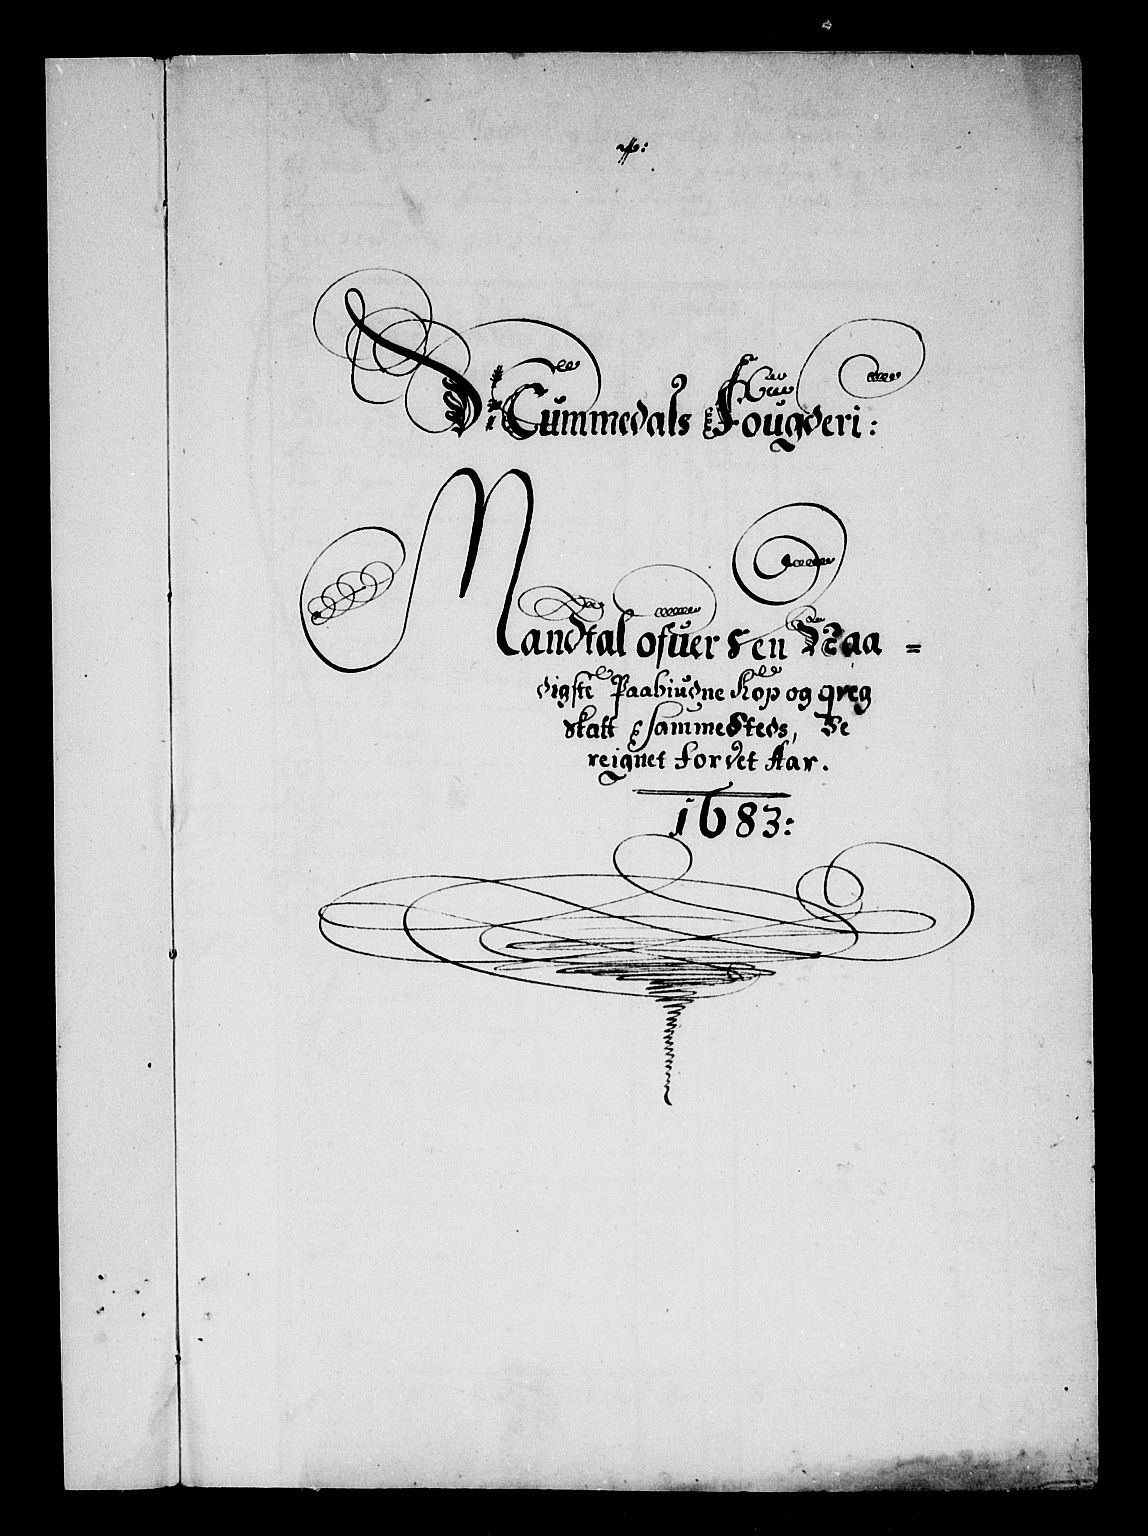 Di Cummedals Fougderi:
Mandtal ofuer den Naa=
digste Paabiudne Kop og qveg
skatt sammesteds, Be
reignet for det Aar.
1683: